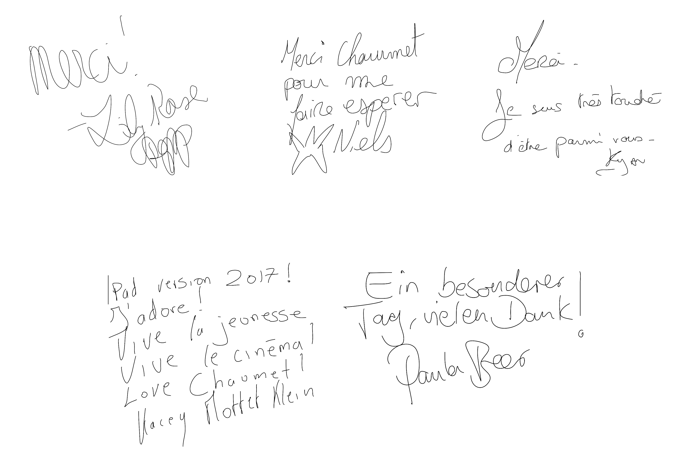 Merci!
-Lily Rose
Depp
Merci Chaumet
pour me
faire esperer
Niels
Merci.
Je suis très touché
d'être parmi vous-
Kyan
IPad version 2017!
J'adore!
Vive la jeunesse
Vive le cinéma!
Love Chaumet!
Kacey Mottet Klein
Ein besonderer
Tag, vielen Dank!
Paula Beer